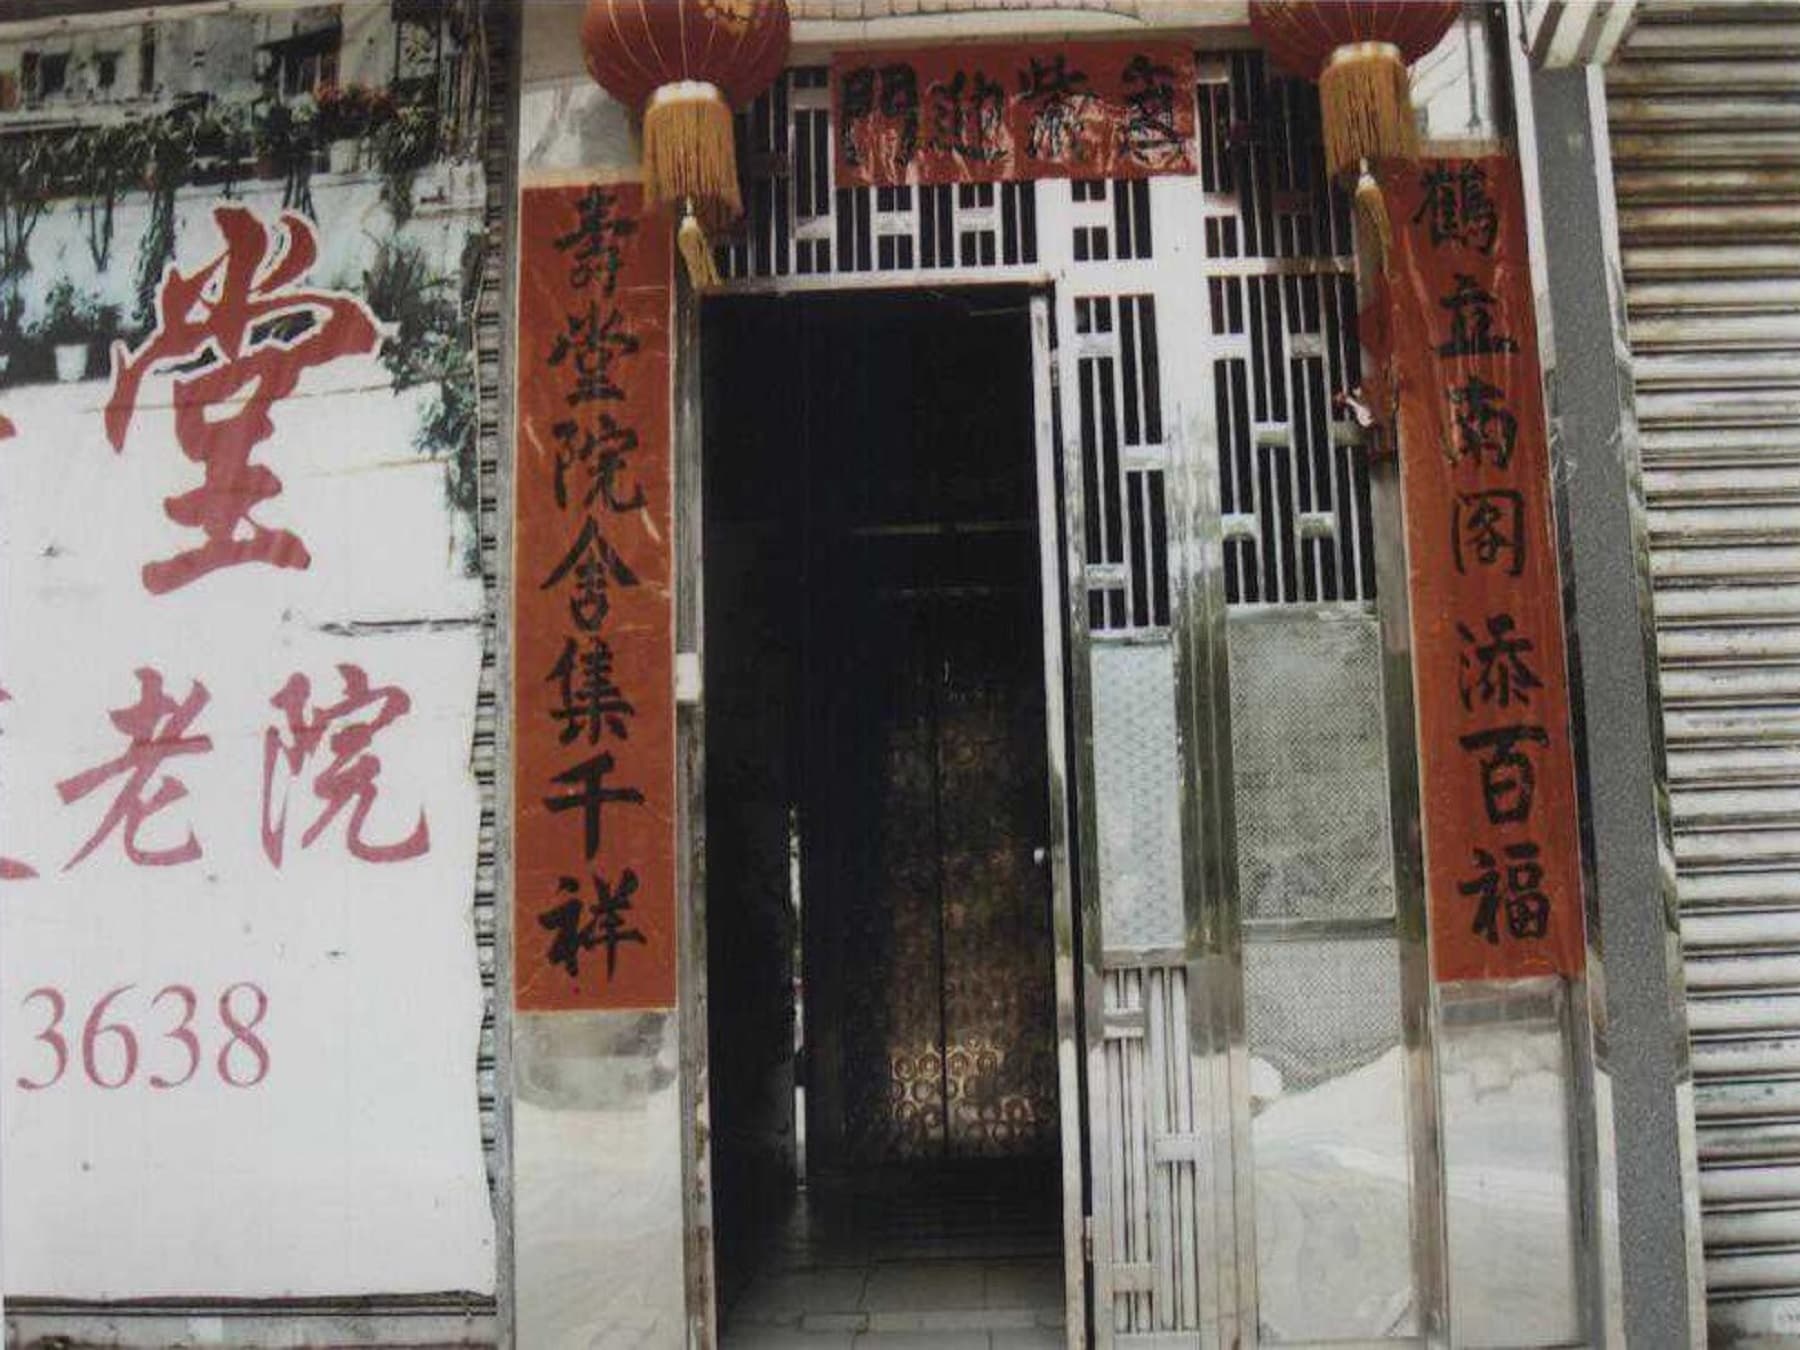 紫迎門
鶴立南阁添百福
壽堂院舍集千祥
堂
老院
3638